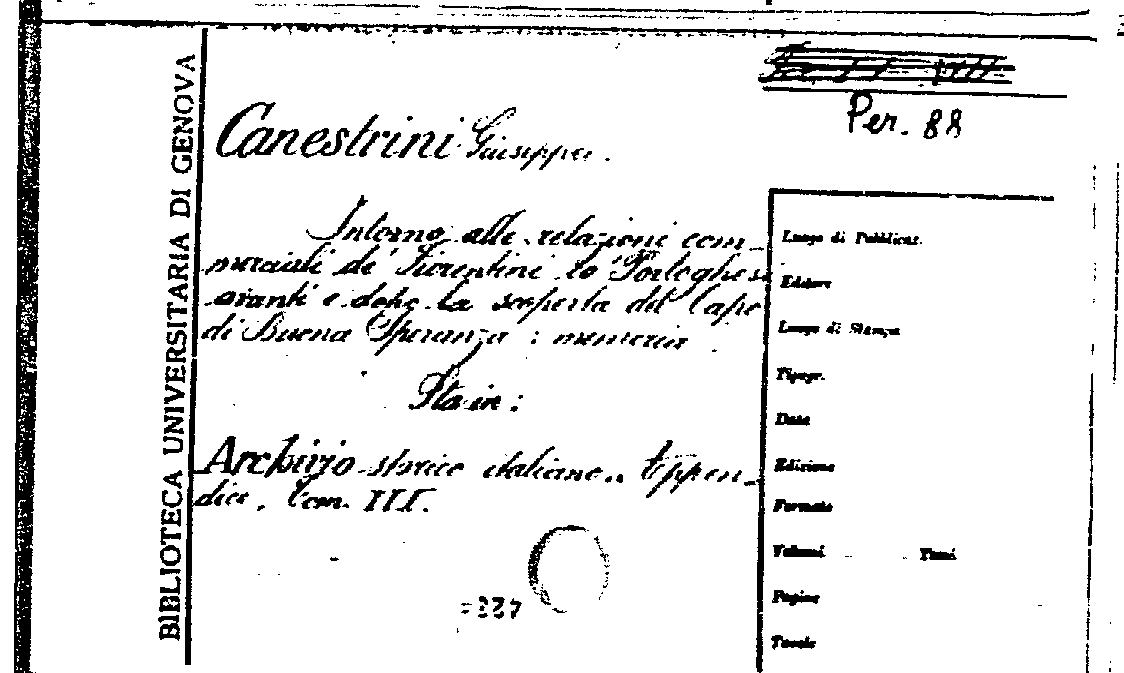 BIBLIOTECA UNIVERSITARIA DI GENOVA
Per. 88
Canestrini Giuseppe.
Intorno alle relazioni com-
merciali de' Fiorentini co' Portoghesi
avanti e dopo la scoperta del Capo
di Buena Speranza : memoria
Sta in :
Archivio storico italiano. Appen-
dice. Tom. III.
Luogo di Pubblicaz.
Editore
Luogo di Stampa
Tipogr.
Data
Edizione
Formato
Volumi Tomi
Pagine
Tavole